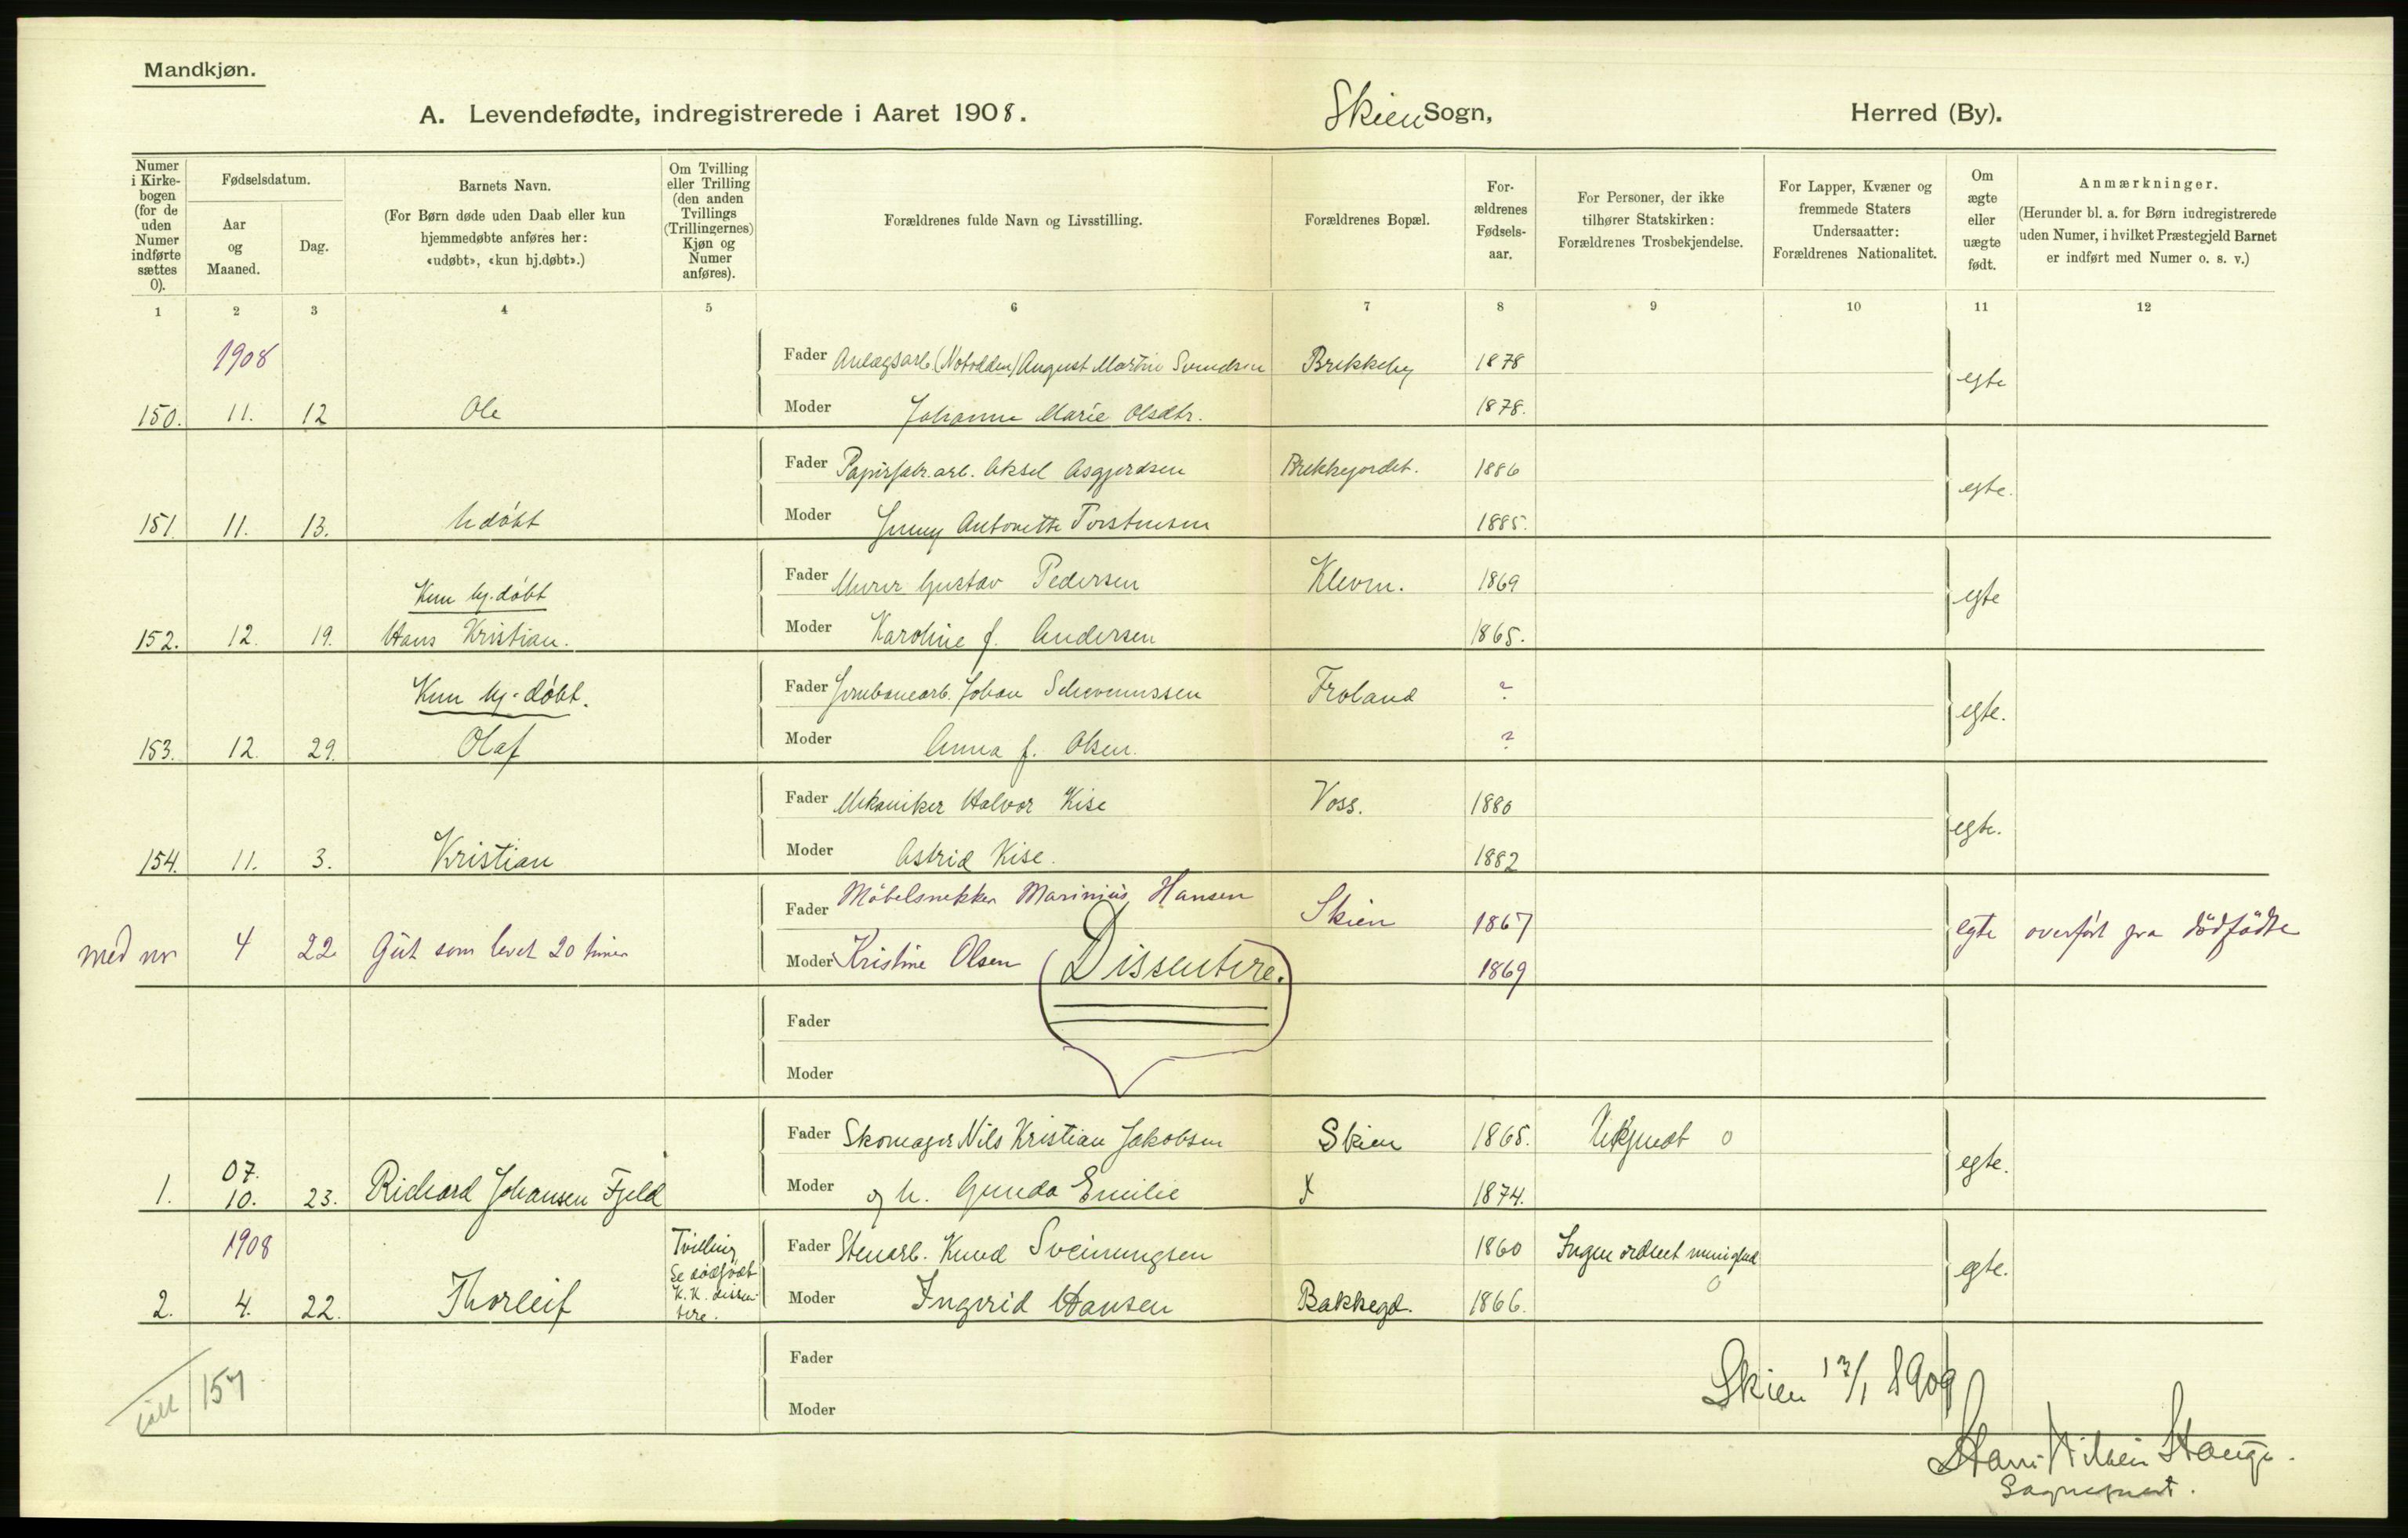 Mandkjøn.
A. Levendefødte, indregistrerede i Aaret 1908. Skien Sogn, Herred (By).
Numer i Kirkebogen (for de uden Numer indførte sættes 0).
Fødselsdatum.
Aar og Maaned.
Dag.
Barnets Navn.
(For Børn døde uden Daab eller kun hjemmedøbte anføres her: «udøbt», «kun hj.døbt».)
Om Tvilling eller Trilling (den anden Tvillings (Trillingernes) Kjøn og Numer anføres).
Forældrenes fulde Navn og Livsstilling.
Forældrenes Bopæl.
Forældrenes Fødselsaar.
For Personer, der ikke tilhører Statskirken: Forældrenes Trosbekjendelse.
For Lapper, Kvæner og fremmede Staters Undersaatter: Forældrenes Nationalitet.
Om ægte eller uægte født.
Anmærkninger.
(Herunder bl. a. for Børn indregistrerede uden Numer, i hvilket Præstegjeld Barnet er indført med Numer o. s. v.)
1 2 3 4 5 6 7 8 9 10 11 12
1908 Fader Anlægsarb. (Notodden) August Martin Svendsen Brekkeby 1878 egte
150. 11. 12 Ole Moder Johanne Marie Olsdtr. 1878.
Fader Papirfabr. arb. Aksel Asgjerdsen Brekkejordet. 1886 egte.
151. 11. 13. Udøbt Moder Jenny Antonette Torstensen 1885.
Kun hj. døbt Fader Murer Gustav Pedersen Kleven. 1869 egte
152. 12. 19. Hans Kristian. Moder Karoline f. Andersen 1865.
Kun hj. døbt. Fader Jernbanearb. Johan Froland ? egte.
153. 12. 29. Olaf Moder Anna f. Olsen. ?
Fader Mekaniker Halvor Kise Voss. 1880 egte.
154. 11. 3. Kristian Moder Astrid Kise. 1882
Fader Möbelsnekker Marinius Hansen Skien 1867
med nr 4 22 Gut som levet 20 timer Moder Kristine Olsen 1869 egte overfört fra dödfödte
Dissentere.
Fader
Moder
07. Fader Skomager Nils Kristian Jakobsen Skien 1865. Ukjendt 0 egte.
1. 10. 23. Richard Johansen Fjeld Moder og h. Gunda Emilie x 1874.
1908 Tvilling Fader Stenarb. Knud Sveinungsen 1860 Ingen ordnet menighed 0 egte.
Se dødfødt K. K. dissentere.
2. 4. 22. Thorleif Moder Ingerid Hansen Bakkegd. 1866.
Fader
Moder
157
Skien 12/1 1909
Stange.
Sogneprest.